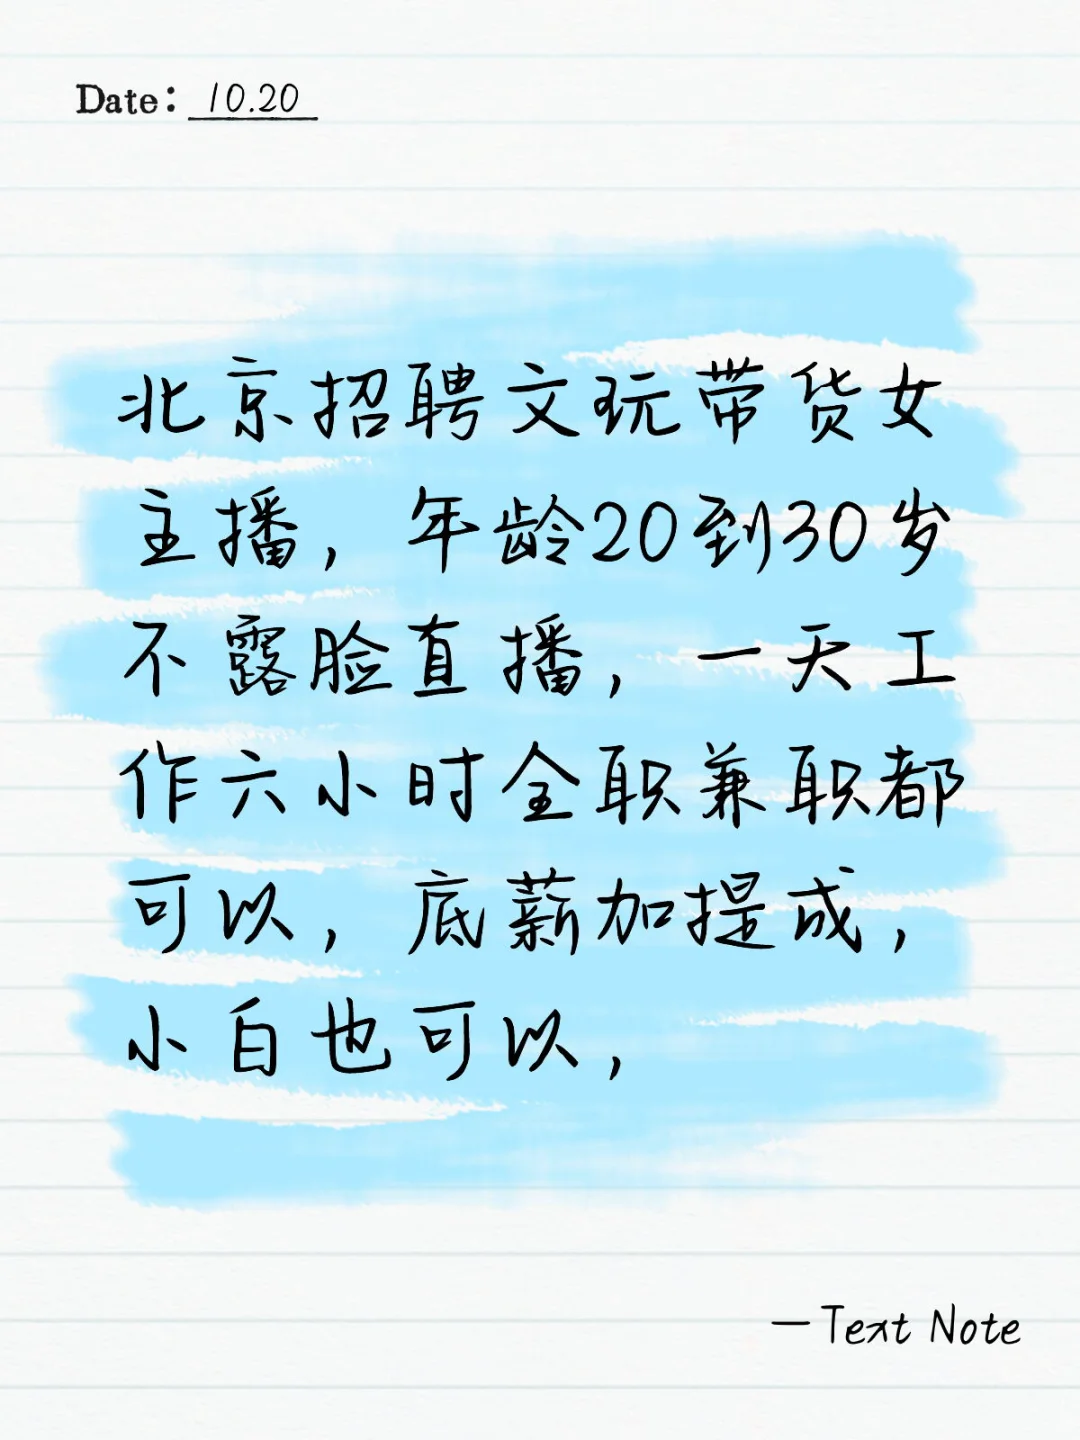 Date: 10.20
北京招聘文玩带货女
主播，年龄20到30岁
不露脸直播，一天工
作六小时全职兼职都
可以，底薪加提成，
小白也可以，
—Text Note